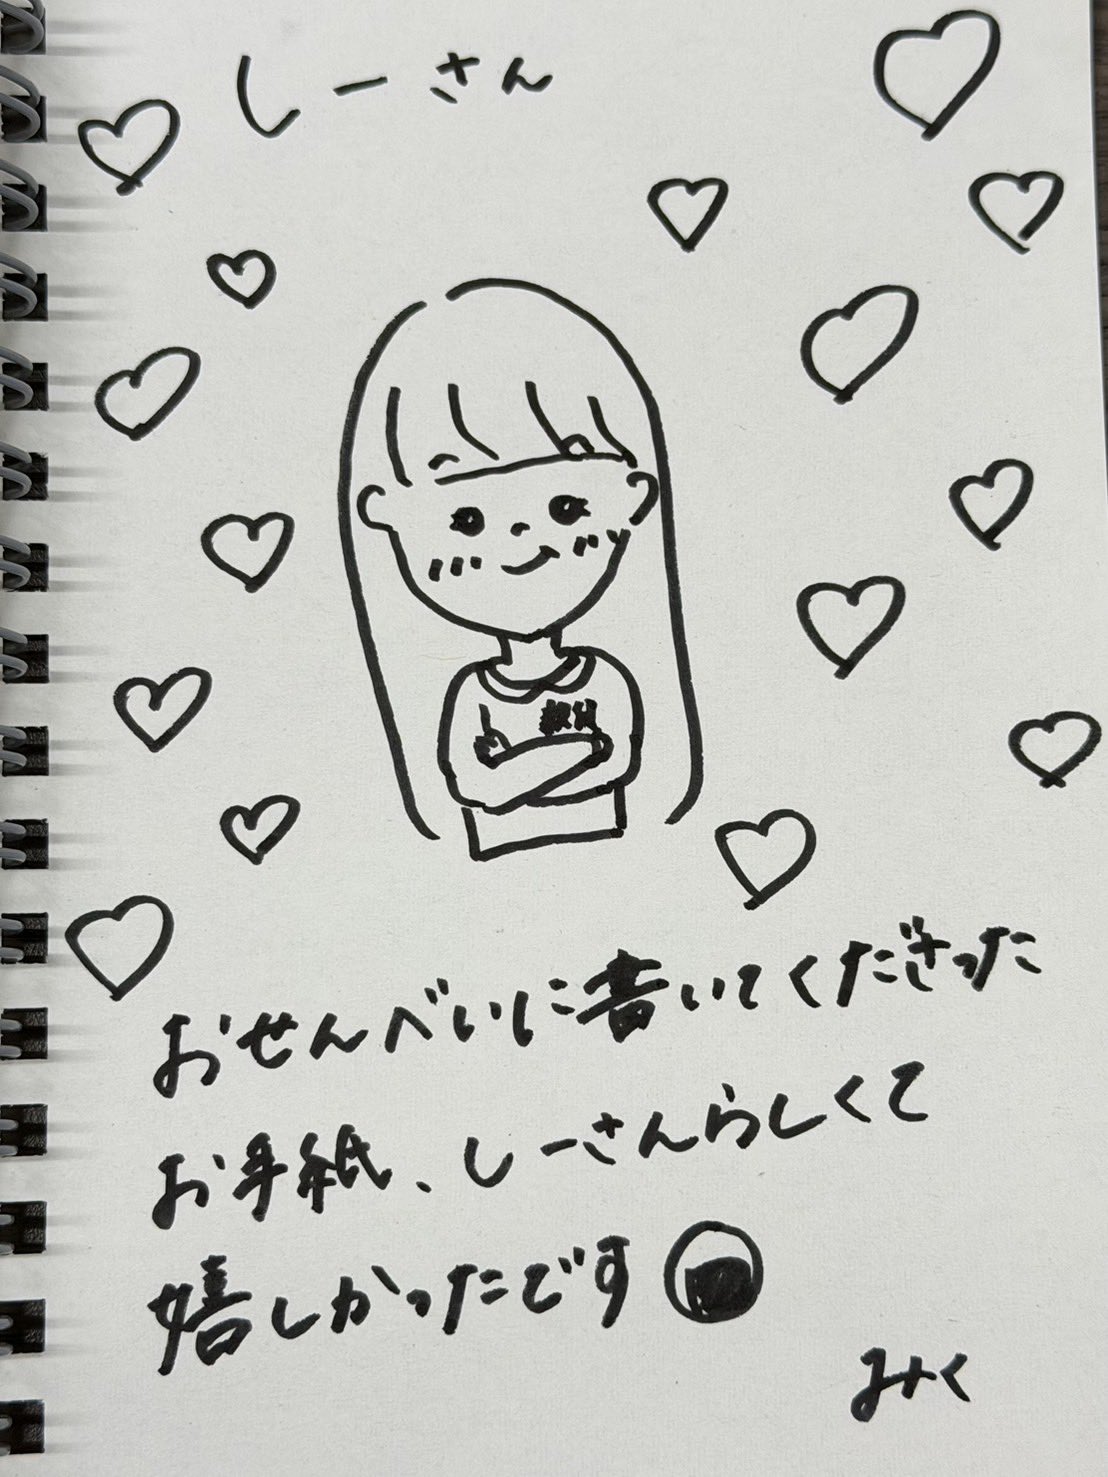 しーさん
おせんべいに書いてくださった
お手紙、しーさんらしくて
嬉しかったです
みく